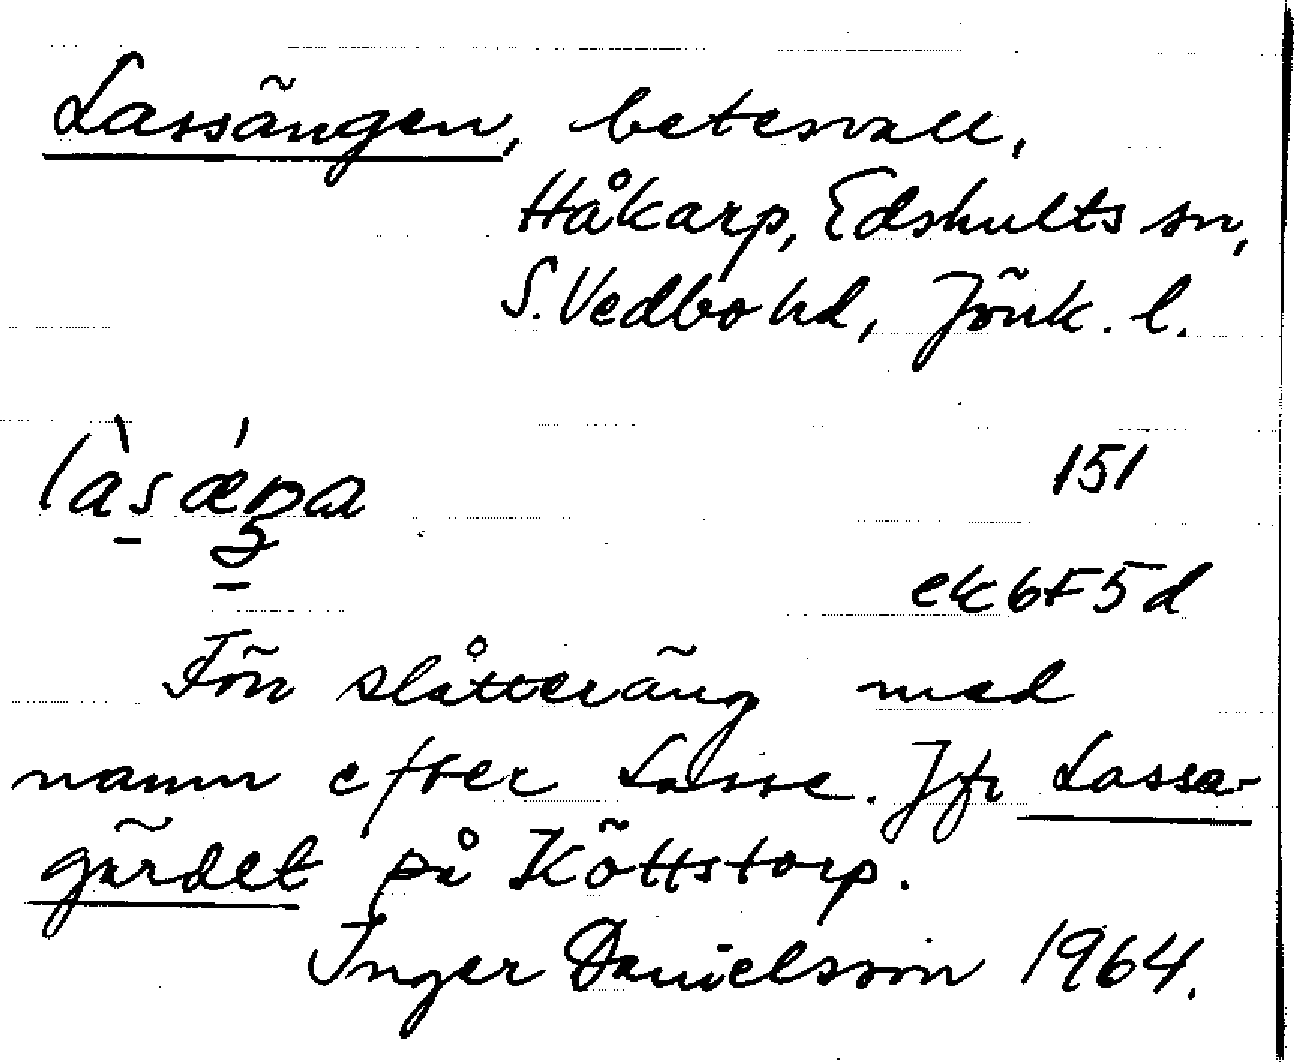 Lassängen, betesvall,
Håkarp, Edshults sn,
S. Vedbo hd, Jönk. l.
151
ek 6F5d
Förr slåtteräng med
namn efter Lasse. Jfr Lassa-
gärdet på Köttstorp.
Inger Danielsson 1964.